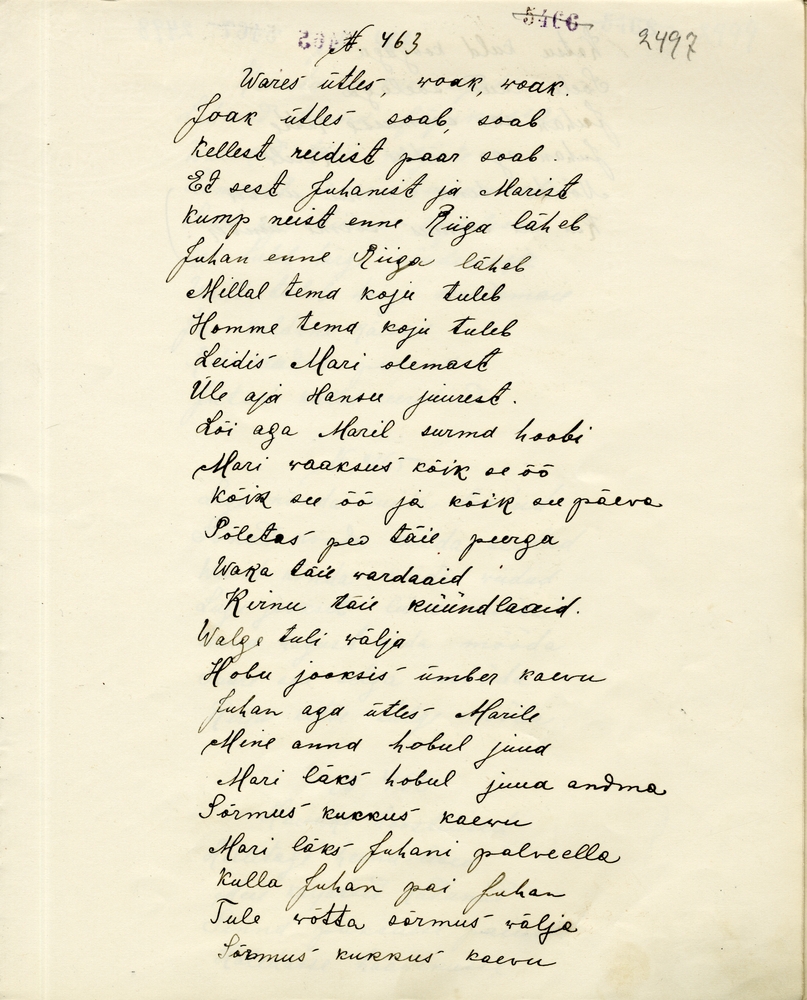 5466
2497
N. 463
Wares ütles, woak, woak.
Joak ütles soab, soab
Kellest neidist paar soab.
Et sest Juhanist ja Marist
Kump neist enne Riiga läheb
Juhan enne Riiga läheb
Millal tema koju tuleb
Homme tema koju tuleb
Leidis Mari olemast
Üle aja Hansu juurest.
Lõi aga Maril surma hoobi
Mari waaksus kõik se öö
Kõik see öö ja kõik see päeva
Põletas peo täie peerga
Waka täie wardaaid
Kirnu täie küündlaaid.
Walge tuli wälja
Hobu jooksis ümber kaevu
Juhan aga ütles Marile
Mine anna hobul juua
Mari läks hobul juua andma
Sõrmus kukkus kaewu
Mari läks Juhani palveella
Kulla Juhan pai Juhan
Tule wõtta sõrmus wälja
Sõrmus kukkus kaevu